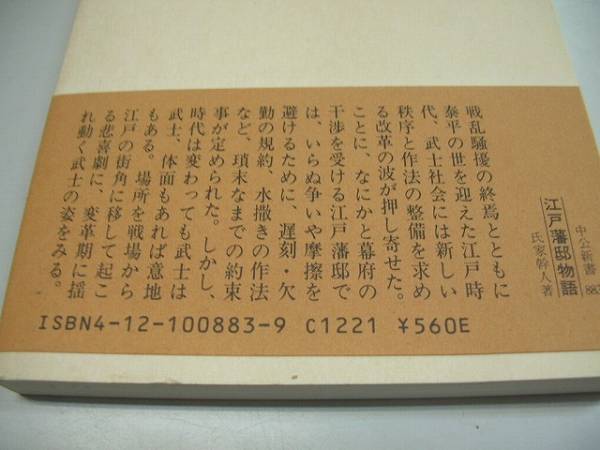 中公新書 883
江戸藩邸物語
氏家幹人著
戦乱騒擾の終焉とともに
泰平の世を迎えた江戸時
代、武士社会には新しい
秩序と作法の整備を求め
る改革の波が押し寄せた。
ことに、なにかと幕府の
干渉を受ける江戸藩邸で
は、いらぬ争いや摩擦を
避けるために、遅刻・欠
勤の規約、水撒きの作法
など、瑣末なまでの約束
事が定められた。しかし、
時代は変わっても武士は
武士、体面もあれば意地
もある。場所を戦場から
江戸の街角に移して起こ
る悲喜劇に、変革期に揺
れ動く武士の姿をみる。
ISBN4-12-100883-9 C1221 ¥560E